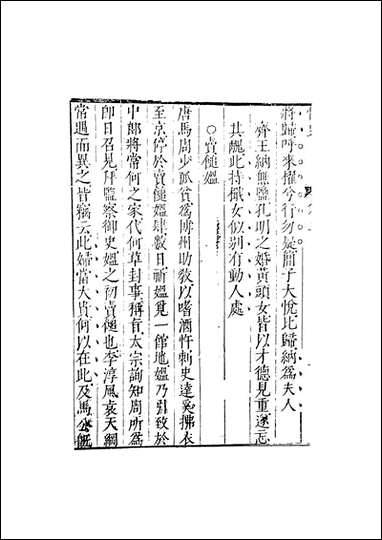 將歸呼來擢兮行勿疑簡子大悅比歸納爲夫人
齊王納無鹽孔明之婚黃頭女皆以才德見重遂忘
其醜此持檝女似別有動人處
○賣䭔媼
唐馬周少孤貧爲博州助敎以嗜酒忤刺史達奚拂衣
至京停於賣䭔媼肆數日祈媼覓一館地媼乃引致於
中郎將常何之家代何草封事稱旨太宗詢知周所爲
卽日召見拜監察御史媼之初賣䭔也李淳風袁天綱
常遇而異之皆竊云此婦當大貴何以在此及馬公旣